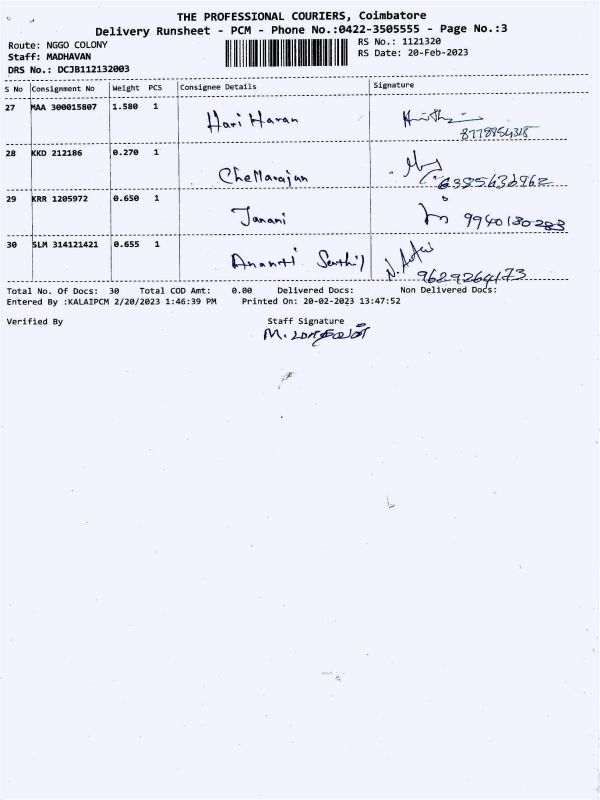 THE PROFESSIONAL COURIERS, Coimbatore
Delivery Runsheet - PCM - Phone No.:0422-3505555 - Page No.:3
Route: NGGO COLONY
RS No.: 1121320
Staff: MADHAVAN
RS Date: 20-Feb-2023
DRS No.: DCJB112132003
S No Consignment No Weight PCS Consignee Details Signature
27 MAA 300015807 1.580 1 Hari Haran
8778954318
28 KKD 212186 0.270 1 Chellarajan
6385636962
29 KRR 1205972 0.650 1 Janani 9940130283
30 SLM 314121421 0.655 1 Ananthi Senthil
9629264173
Total No. Of Docs: 30 Total COD Amt: 0.00 Delivered Docs: Non Delivered Docs:
Entered By :KALAIPCM 2/20/2023 1:46:39 PM Printed On: 20-02-2023 13:47:52
Verified By Staff Signature
M. மாதவன்